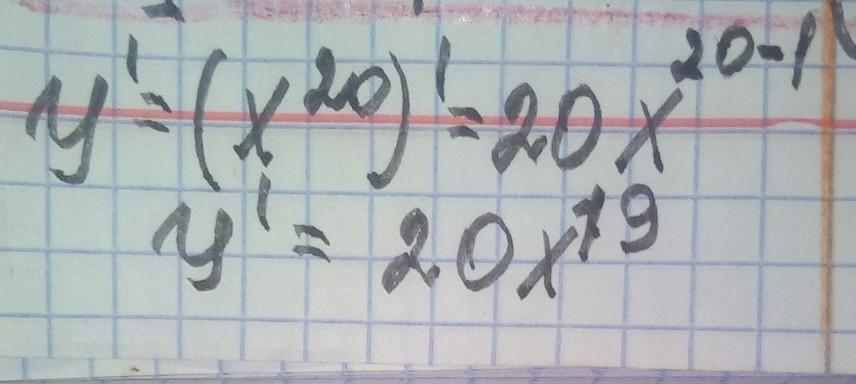 y' = (x²⁰)' = 20x²⁰⁻¹
y' = 20x¹⁹